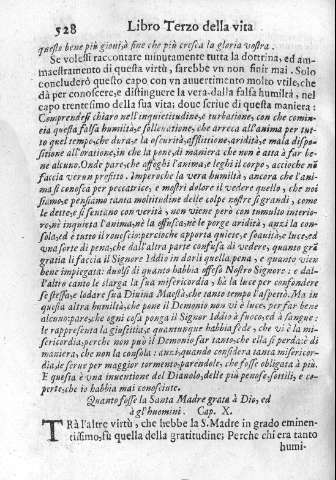 528 Libro Terzo della vita
questo bene più giontà fine che più cresca la gloria vostra.
Se volessi raccontare minutamente tutta la dottrina, ed am-
maestramento di questa virtù, sarebbe vn non finir mai. Solo
concluderò questo capo con vn auuertimento molto vtile, che
dà per conoscere, e distinguere la vera dalla falsa humiltà, nel
capo trentesimo della sua vita; doue scriue di questa maniera:
Comprendesi chiaro nell'inquietitudine, e turbatione, con che comin-
cia questa falsa humiltà, e solleuatione, che arreca all'anima per tut-
to quel tempo, che dura, e la oscurità, afflittione, aridità, e mala dispo-
sitione all'oratione, in che la pone, di maniera che non è atta à far be-
ne alcuno. Onde pare, che affoghi l'anima, e leghi il corpo, acciochè nō
faccia verun profitto. Imperoche la vera humiltà, ancora che l'ani-
ma si conosca per peccatrice, e mostri dolore il vedere quello, che noi
siamo, e pensiamo tanta moltitudine delle colpe nostre sì grandi, come
le dette, e si sentano con verità, non viene però con tumulto interio-
re, nè inquieta l'anima, nè la offusca, nè le porge aridità, anzi la con-
sola, ed è tutto il rouescio: perche apporta quiete, e soauità, e luce, ed è
vna sorte di pena, che dall'altra parte confusa di vedere, quanto grā
gratia li faccia il Signore Iddio in darli quella pena, e quanto vien
bene impiegata: duolsi di quanto habbia offeso Nostro Signore: e dal-
l'altro canto le slarga la sua misericordia, hà la luce per confondere
se stessa, e lodare sua Diuina Maestà, che tanto tempo l'aspettò. Ma in
questa altra humiltà, che pone il Demonio non vi è luce, per far bene
alcuno: pare, che ogni cosa ponga il Signor Iddio à fuoco, ed à sangue:
le rappresenta la giustitia, e quantunque habbia fede, che vi è la mi-
sericordia, perche non può il Demonio far tanto, che ella si perda: è di
maniera, che non la consola: anzi, quando considera tanta misericor-
dia, le serue per maggior tormento, parendole, che fosse obligata à più.
E questa è vna inuentione del Diauolo, delle più penose, sottili, e co-
perte, che io habbia mai conosciute.
Quanto fosse la Santa Madre grata à Dio, ed
à gl'huomini. Cap. X.
TRà l'altre virtù, che hebbe la S. Madre in grado eminen-
tissimo, fù quella della gratitudine; Perche chi era tanto
humi-